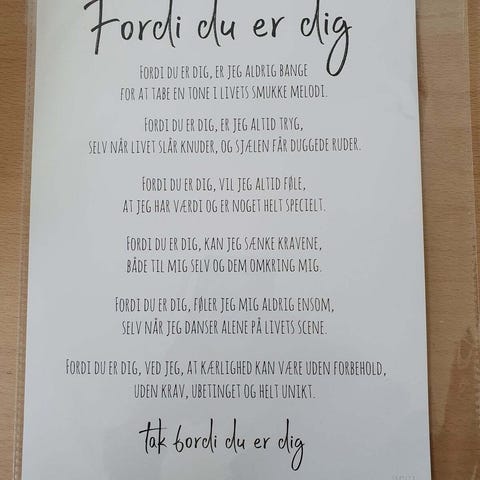 Fordi du er dig
FORDI DU ER DIG, ER JEG ALDRIG BANGE
FOR AT TABE EN TONE I LIVETS SMUKKE MELODI.
FORDI DU ER DIG, ER JEG ALTID TRYG,
SELV NÅR LIVET SLÅR KNUDER, OG SJÆLEN FÅR DUGGEDE RUDER.
FORDI DU ER DIG, VIL JEG ALTID FØLE,
AT JEG HAR VÆRDI OG ER NOGET HELT SPECIELT.
FORDI DU ER DIG, KAN JEG SÆNKE KRAVENE,
BÅDE TIL MIG SELV OG DEM OMKRING MIG.
FORDI DU ER DIG, FØLER JEG MIG ALDRIG ENSOM,
SELV NÅR JEG DANSER ALENE PÅ LIVETS SCENE.
FORDI DU ER DIG, VED JEG, AT KÆRLIGHED KAN VÆRE UDEN FORBEHOLD,
UDEN KRAV, UBETINGET OG HELT UNIKT.
tak fordi du er dig